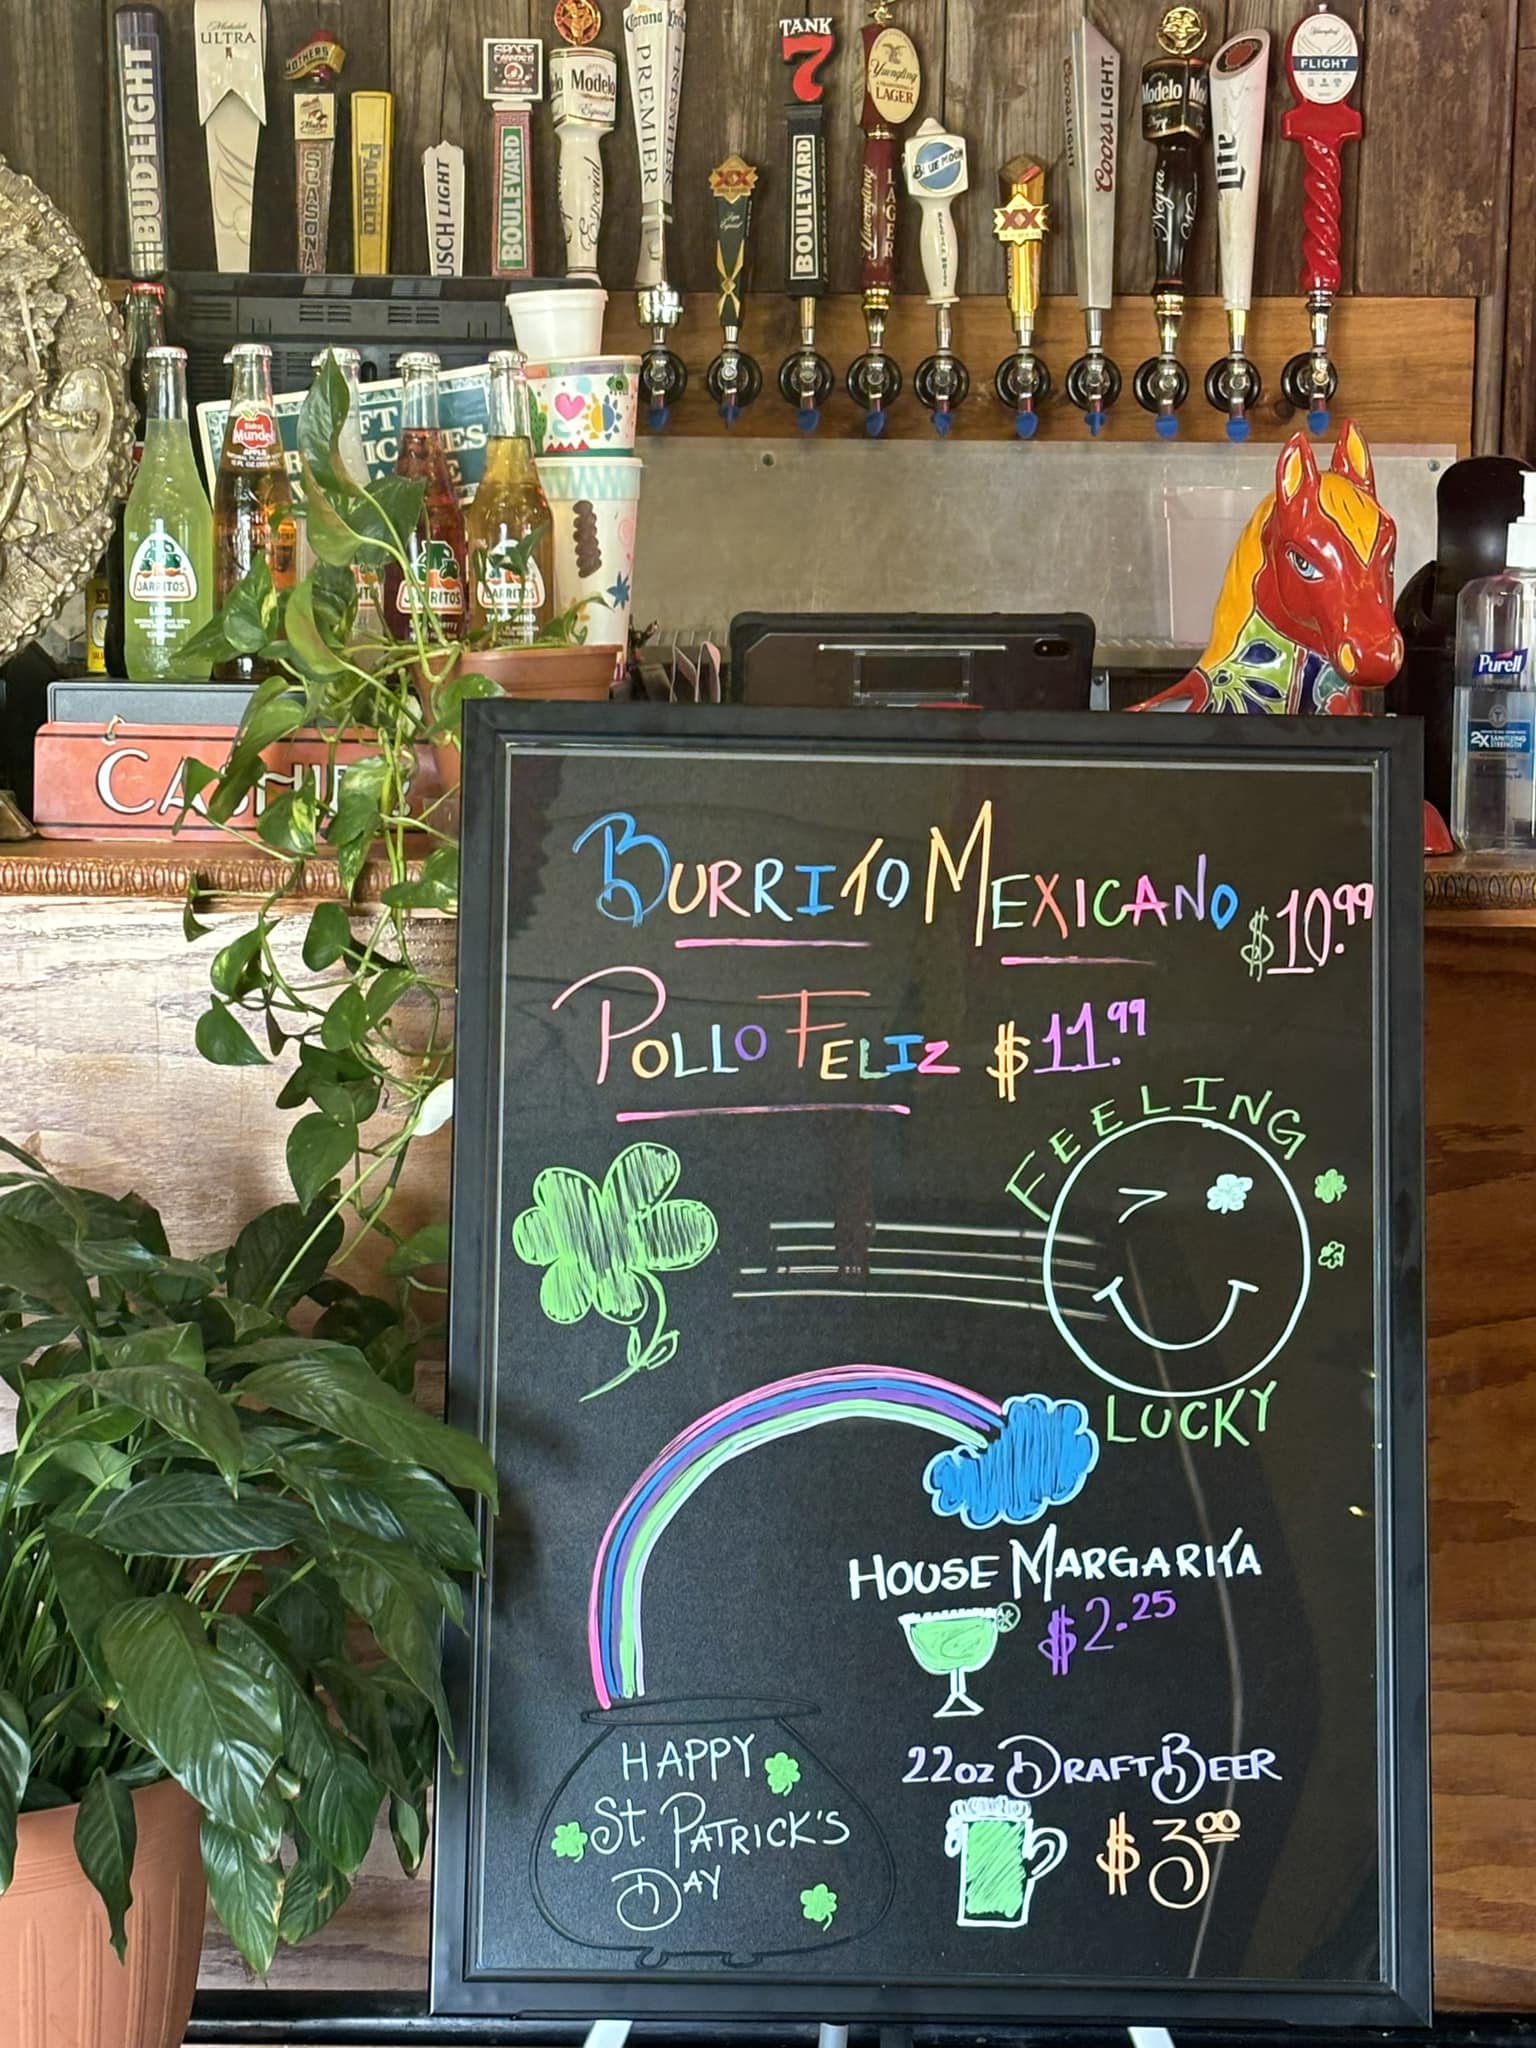 BUD LIGHT
Michelob
ULTRA
MOTHERS
SEASONAL
PACIFICO
BUSCH LIGHT
SPACE
CAMPER
BOULEVARD
Modelo
Especial
Especial
Corona
PREMIER
XX
TANK
7
BOULEVARD
Yuengling
LAGER
Yuengling
LAGER
BLUE MOON
XX
Coors LIGHT
Modelo
Negra
Lite
Yuengling
FLIGHT
Sidral
Mundet
APPLE
JARRITOS
LIME
JARRITOS
JARRITOS
CASHIER
Purell
2X SANITIZING
STRENGTH
BURRITO MEXICANO $10.99
POLLO FELIZ $11.99
FEELING
LUCKY
HOUSE MARGARITA
$2.25
22oz DRAFT BEER
$3.00
HAPPY
St. PATRICK'S
DAY